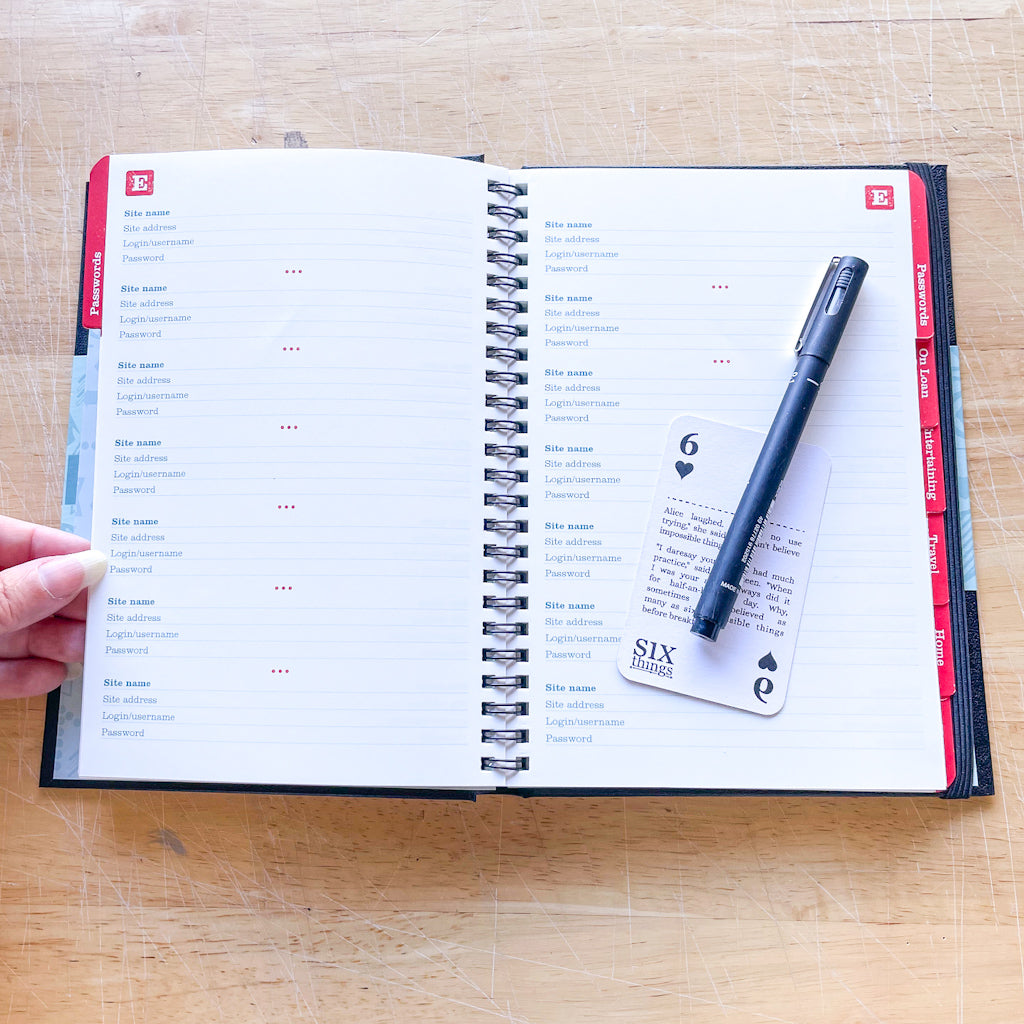 Passwords
E
Site name
Site address
Login/username
Password
Site name
Site address
Login/username
Password
Site name
Site address
Login/username
Password
Site name
Site address
Login/username
Password
Site name
Site address
Login/username
Password
Site name
Site address
Login/username
Password
Site name
Site address
Login/username
Password
E
Site name
Site address
Login/username
Password
Site name
Site address
Login/username
Password
Site name
Site address
Login/username
Password
Site name
Site address
Login/username
Password
Site name
Site address
Login/username
Password
Site name
Site address
Login/username
Password
Site name
Site address
Login/username
Password
6
Alice laughed. no use
trying," she said believe
impossible
"I daresay had much
practice," "When
I was your did it
for day. Why,
sometimes believed as
many as six things
before
SIX
things
6
MADE
Passwords
On Loan
ntertaining
Travel
Home